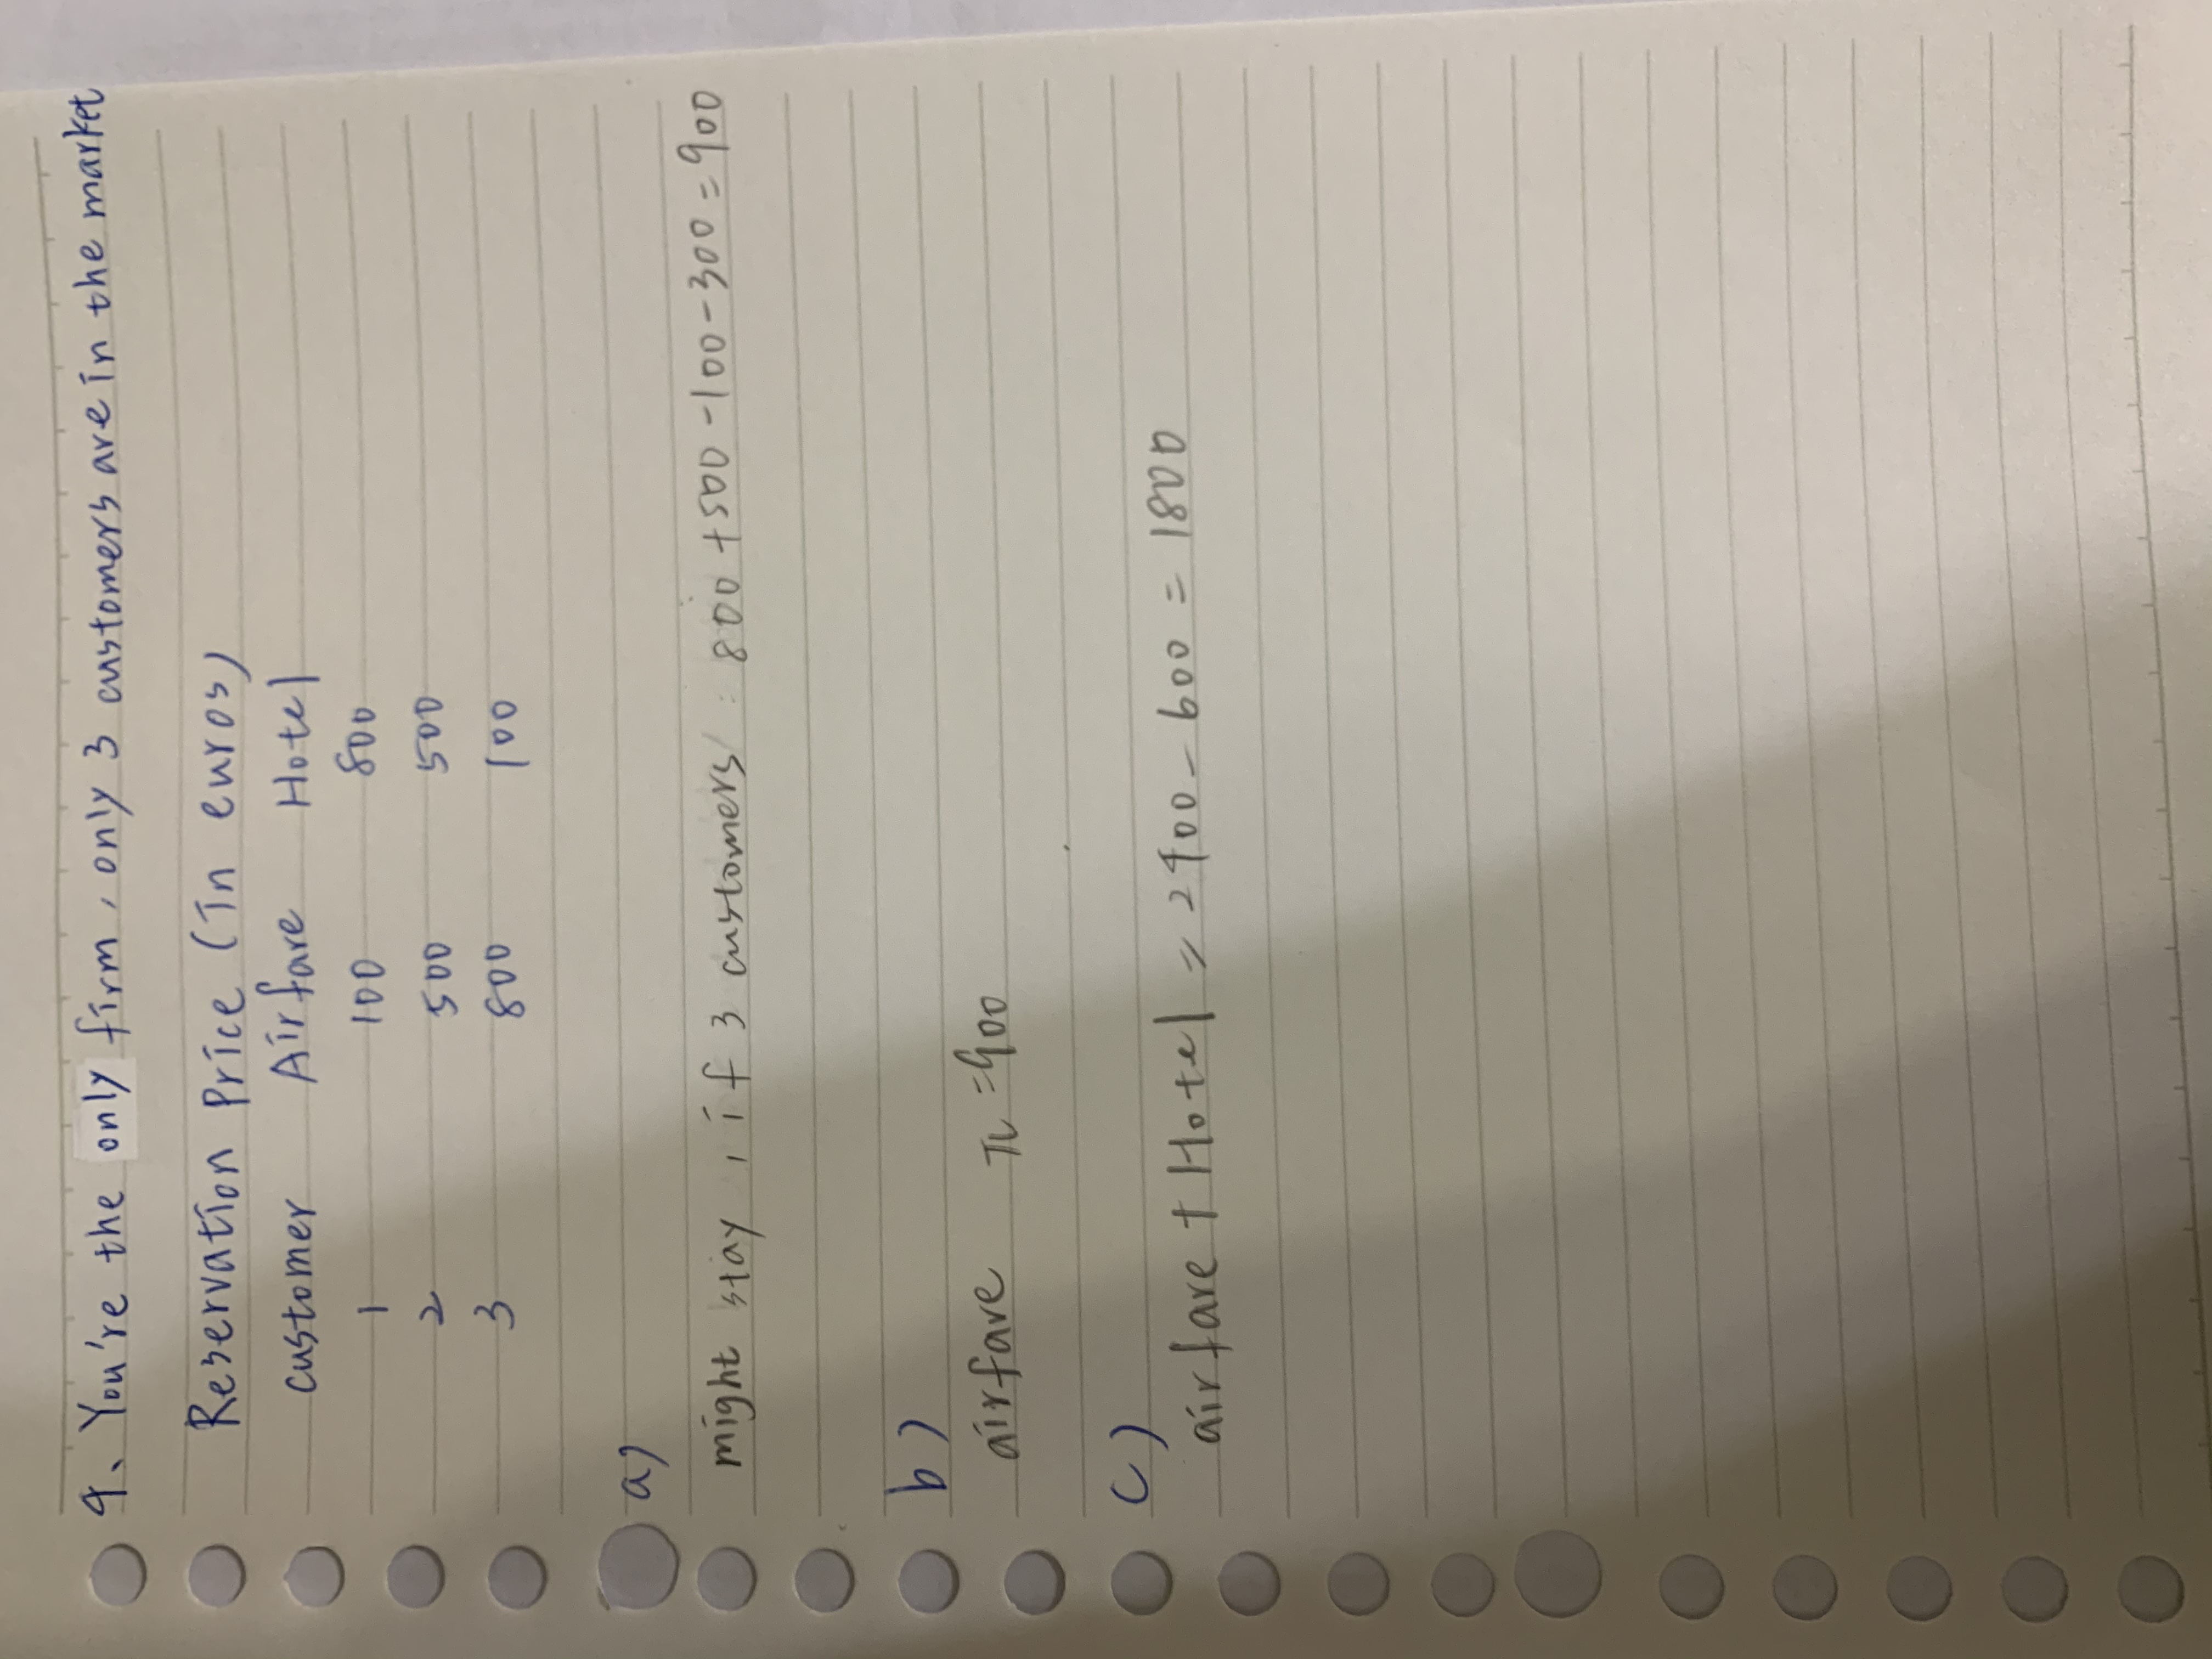 4、You're the only firm, only 3 customers are in the market
Reservation Price (in euros)
customer Airfare Hotel
1 100 800
2 500 500
3 800 100
a)
might stay, if 3 customers: 800+500-100-300=900
b)
airfare π=900
c)
airfare + Hotel = 2400-600=1800